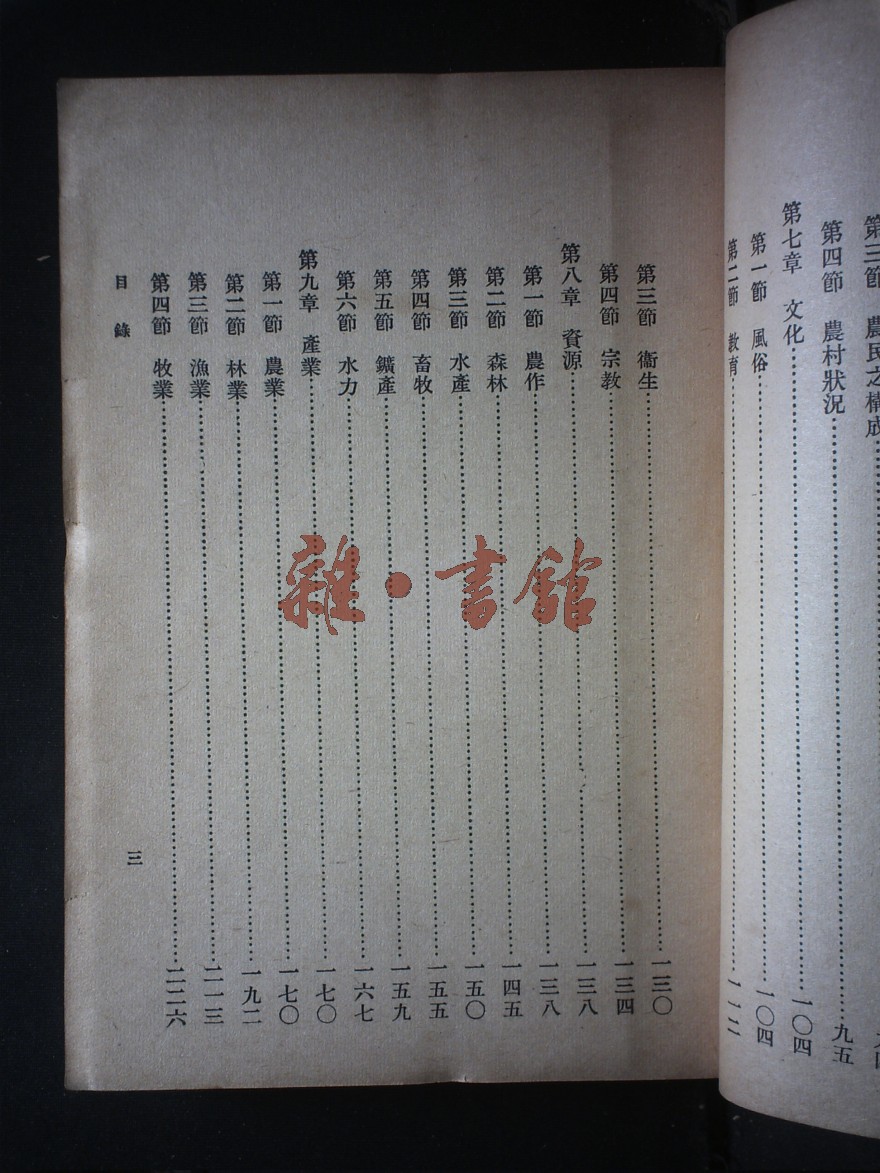 第三節 農民之構成
第四節 農村狀況……九五
第七章 文化……一〇四
第一節 風俗……一〇四
第二節 教育……一一二
第三節 衞生……一三〇
第四節 宗教……一三四
第八章 資源……一三八
第一節 農作……一三八
第二節 森林……一四五
第三節 水產……一五〇
第四節 畜牧……一五五
第五節 鑛產……一五九
第六節 水力……一六七
第九章 產業……一七〇
第一節 農業……一七〇
第二節 林業……一九二
第三節 漁業……二一三
第四節 牧業……二二六
目錄
三
雜·書館